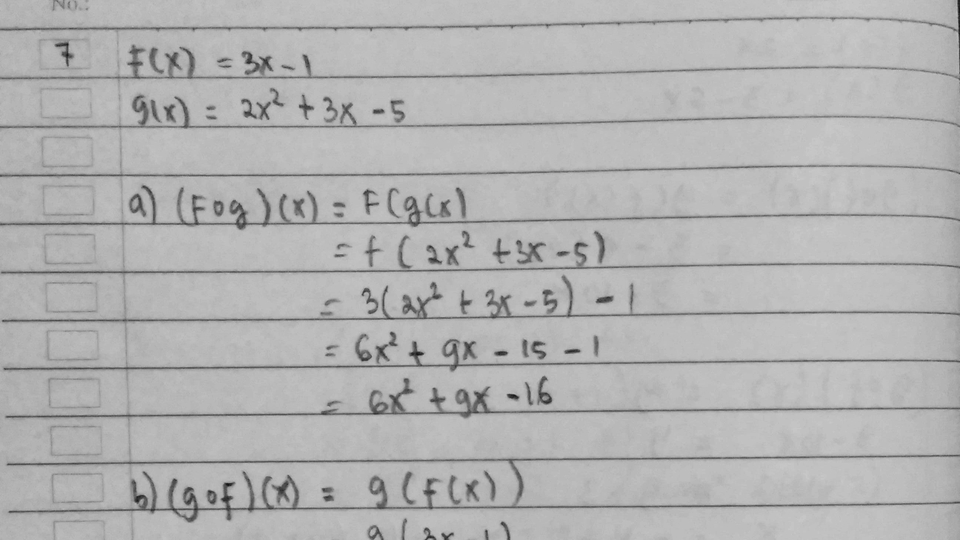 No.:
7 F(x) = 3x - 1
g(x) = 2x² + 3x - 5
a) (Fog)(x) = F(g(x)
= f(2x² + 3x - 5)
= 3(2x² + 3x - 5) - 1
= 6x² + 9x - 15 - 1
= 6x² + 9x - 16
b) (gof)(x) = g(F(x))
g(3x-1)